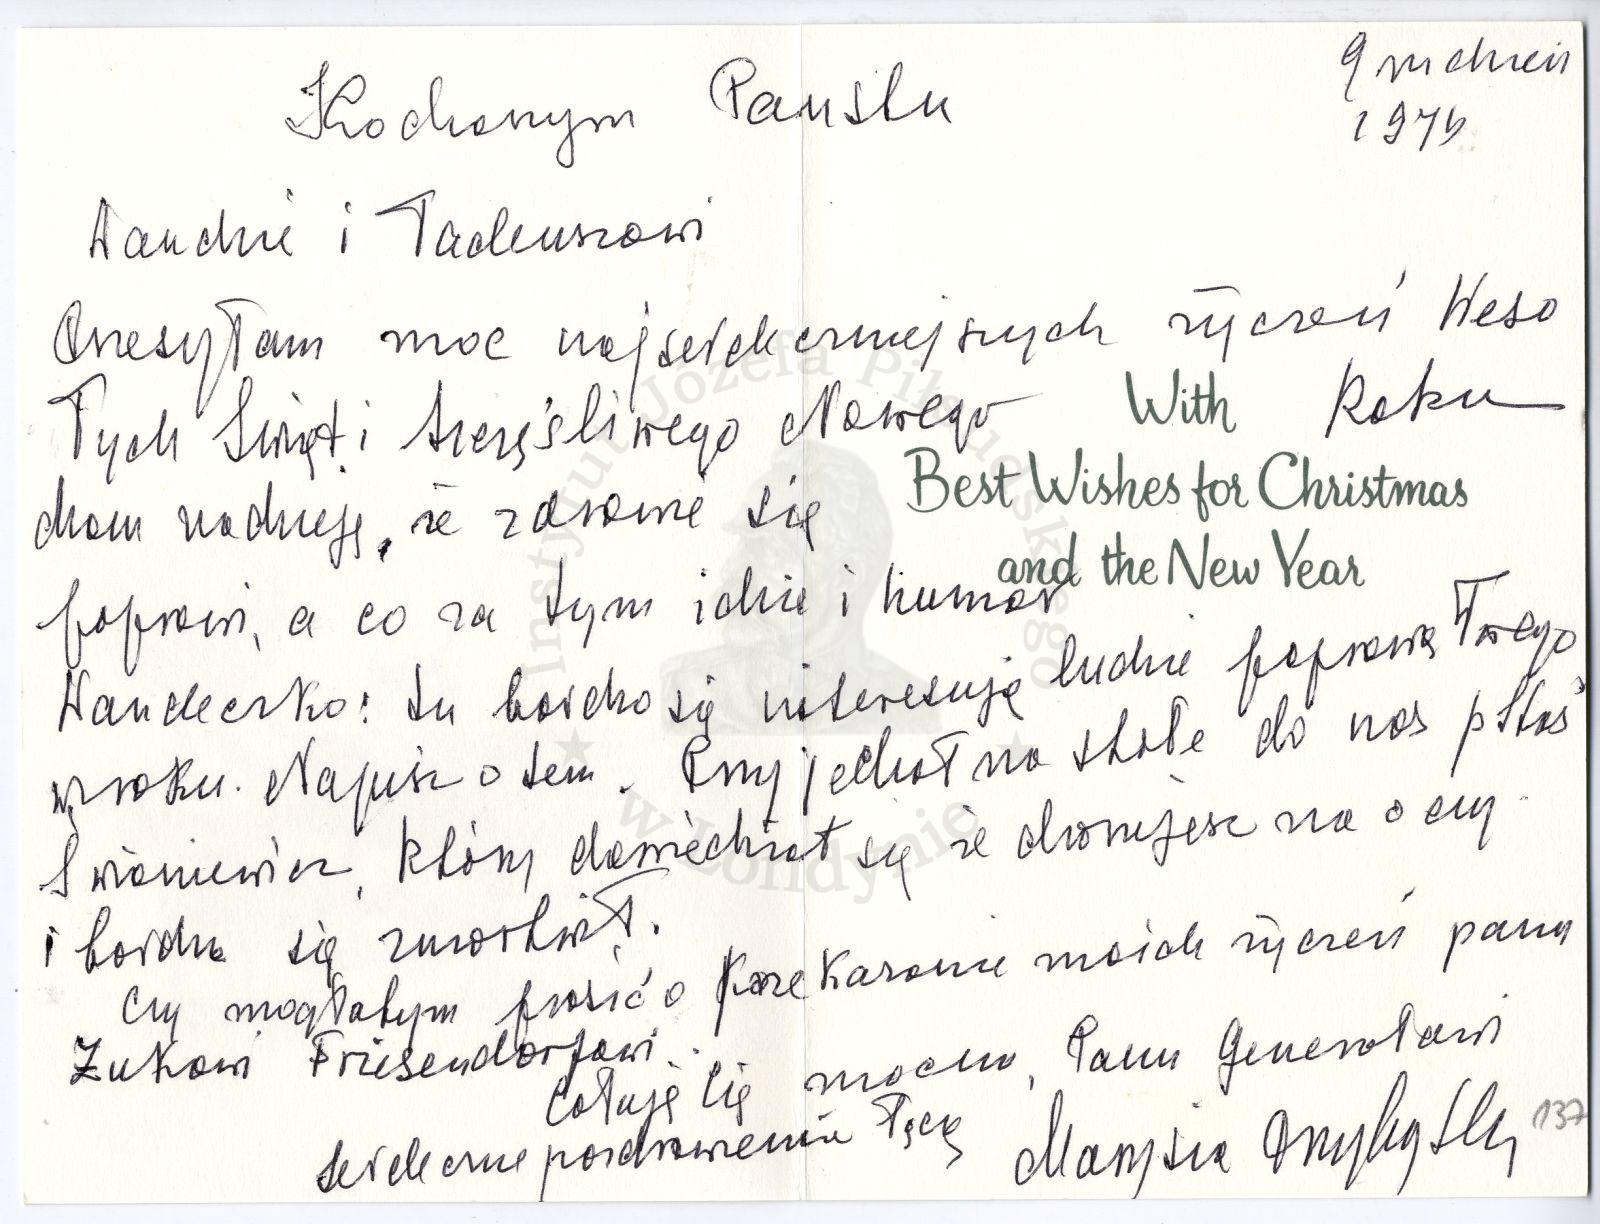 Grudzień
1976
Kochanym Państwu
Wandzie i Tadeuszowi
Przesyłam moc najserdeczniejszych życzeń Weso
łych Świąt i Szczęśliwego Nowego Roku
With
Best Wishes for Christmas
and the New Year
Mam nadzieję, że zdrowie się
poprawi, a co za tym idzie i humor
Wandeczko: tu bardzo się interesują ludzie poprawą Twego
wzroku. Napisz o tem. Przyjechał na stałe do nas p Staś
Świaniewicz, który dowiedział się że chorujesz na oczy
i bardzo się zmartwił.
Czy mogłabym prosić o przekazanie moich życzeń panu
Żukowi Friesendorfowi.
Całuję Cię mocno, Panu Generałowi
serdeczne pozdrowienia łączę
Marysia Przybylska
137
Instytut Józefa Piłsudskiego
w Londynie